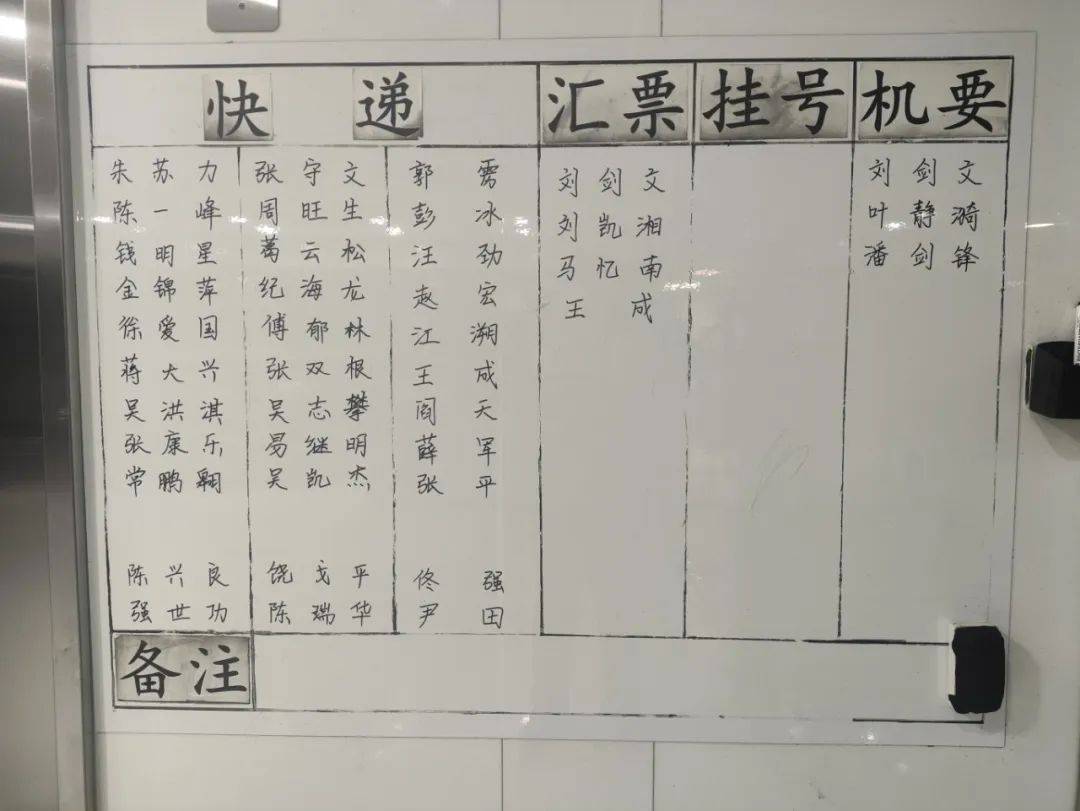 快递 汇票 挂号 机要
朱苏力
陈一峰
钱明星
金锦萍
徐爱国
蒋大兴
吴洪淇
张康乐
常鹏翱
陈兴良
强世功
张守文
周旺生
葛云松
纪海龙
傅郁林
张双根
吴志攀
易继明
吴凯杰
饶戈平
陈瑞华
郭雳
彭冰
汪劲
赵宏
江溯
王成
阎天
薛军
张平
佟强
尹田
刘剑文
刘凯湘
马忆南
王成
刘剑文
叶静漪
潘剑锋
备注